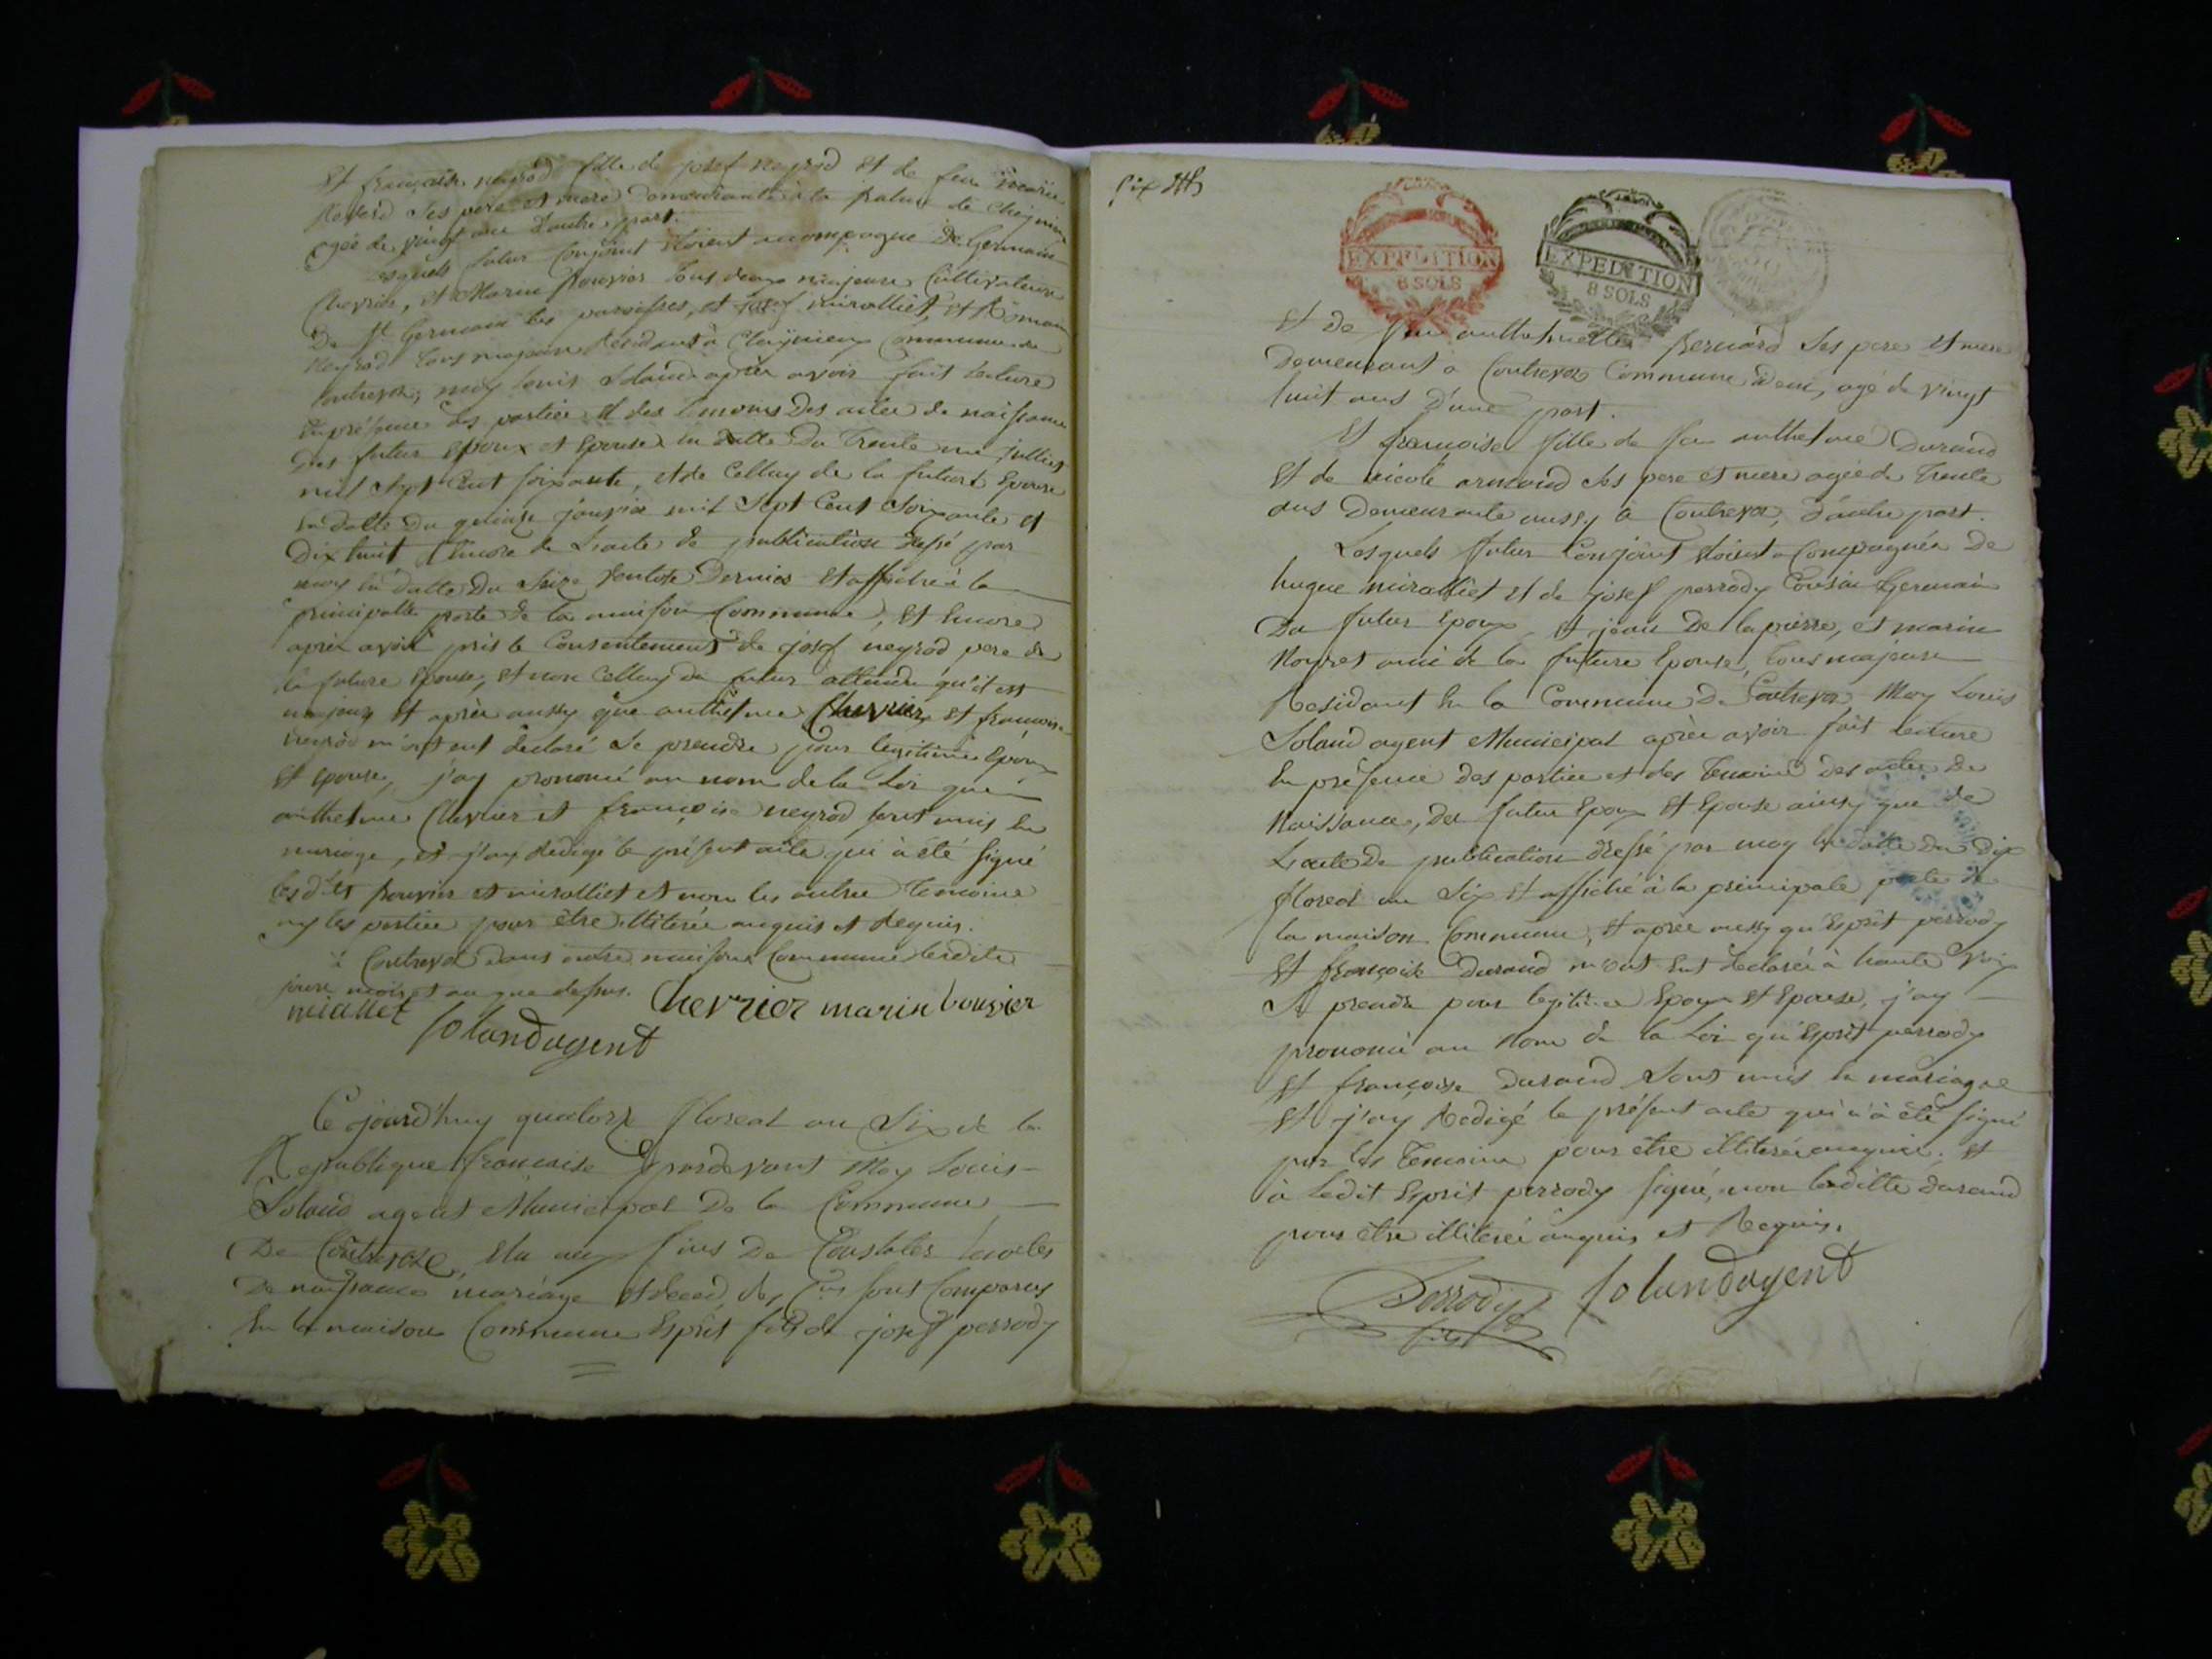 Et françoise neyrod fille de josef neyrod Et de feue
ses pere et mere demeurante à la
agée de vingt ans d'autre part.
Lesquels futur Conjoint étoient accompagné de Germain
Chevrier, et Marin bouvier tous deux majeurs Cultivateurs
De St Germain les paroisses, et josef miralliet, et Romain
Neyrod tous majeurs Résidant à Cheignieu Commune de
Contrevoz, moy louis Soland après avoir fait lecture
En présence des parties et des temoins des actes de naissance
des futur Epoux et Epouse en datte du Trente un juilliet
mil sept Cent soixante, et de Celluy de la future Epouse
En datte du quinze janvier mil Sept Cent Soixante et
Dix huit, Encore de L'acte de publication dressé par
moy En datte Du Seize Ventose Dernier Et affiché à la
principalle porte de la maison Commune, Et Encore
après avoir pris le Consentement de josef neyrod pere de
la future Epouse, Et non Celluy du futur attendu qu'il est
majeur Et après aussy que anthelme Chevrier et françoise
neyrod m'ont eut déclaré Se prendre pour legitime Epoux
Et Epouse, j'ay prononcé au nom de la Loi que
anthelme Chevrier et françoise neyrod sont unis En
mariage, et j'ay Redigé le présent acte qui à été signé
les dits bouvier et miralliet et non les autres temoins
ny les parties pour être illiterée enquis et Requis.
à Contrevoz dans notre maison Commune lesdits
jours mois et an que dessus.
miallet Chevrier marin bouvier
Solandagent
Ce jourd'huy quatorze floreal an Six de la
République francaise pardevant Moy Louis
Soland agent Municipal De la Commune
De Contrevoz, Elu aux fins De Constater les actes
De naissance mariage Et deces, sont Comparus
En la maison Commune Esprit fils de josef perrody
Six
EXPEDITION
8 SOLS
EXPEDITION
8 SOLS
Et De feue anthelmette bernard Ses pere Et mere
Demeurant à Contrevoz Commune idem, agé de vingt
huit ans D'une part.
Et françoise fille de feu anthelme Durand
Et de nicole armand Ses pere et mere agée de Trente
ans Demeurante aussy à Contrevoz, d'autre part.
Lesquels futur Conjoint étoient accompagnée De
hugue miralliet Et de josef perrody Cousin Germain
Du futur Epoux, Et jean De lapierre, et marin
Noyret ami de la future Epouse, tous majeurs
Residant En la Commune De Contrevoz, Moy Louis
Soland agent Municipal après avoir fait lecture
En présence des parties et des temoins des actes de
Naissance, des futur Epoux Et Epouse ainsy que de
L'acte De publication dressé par moy En datte du Dix
floreal an Six Et affiché à la principale porte de
la maison Commune, Et après aussy qu'Esprit perrody
Et françoise Durand m'ont Eut déclarée à haute Voix
Se prendre pour legitime Epoux Et Epouse, j'ay
prononcé au Nom de la Loi qu'Esprit perrody
Et françoise Durand Sont unis En mariage
Et j'ay Redigé le présent acte qui n'à été signé
par les Temoins pour être illiterée enquis, Et
à Ledit Esprit perrody signé, non laditte durand
pour être illiterée enquis et Requis.
Perrody Solandagent
fils